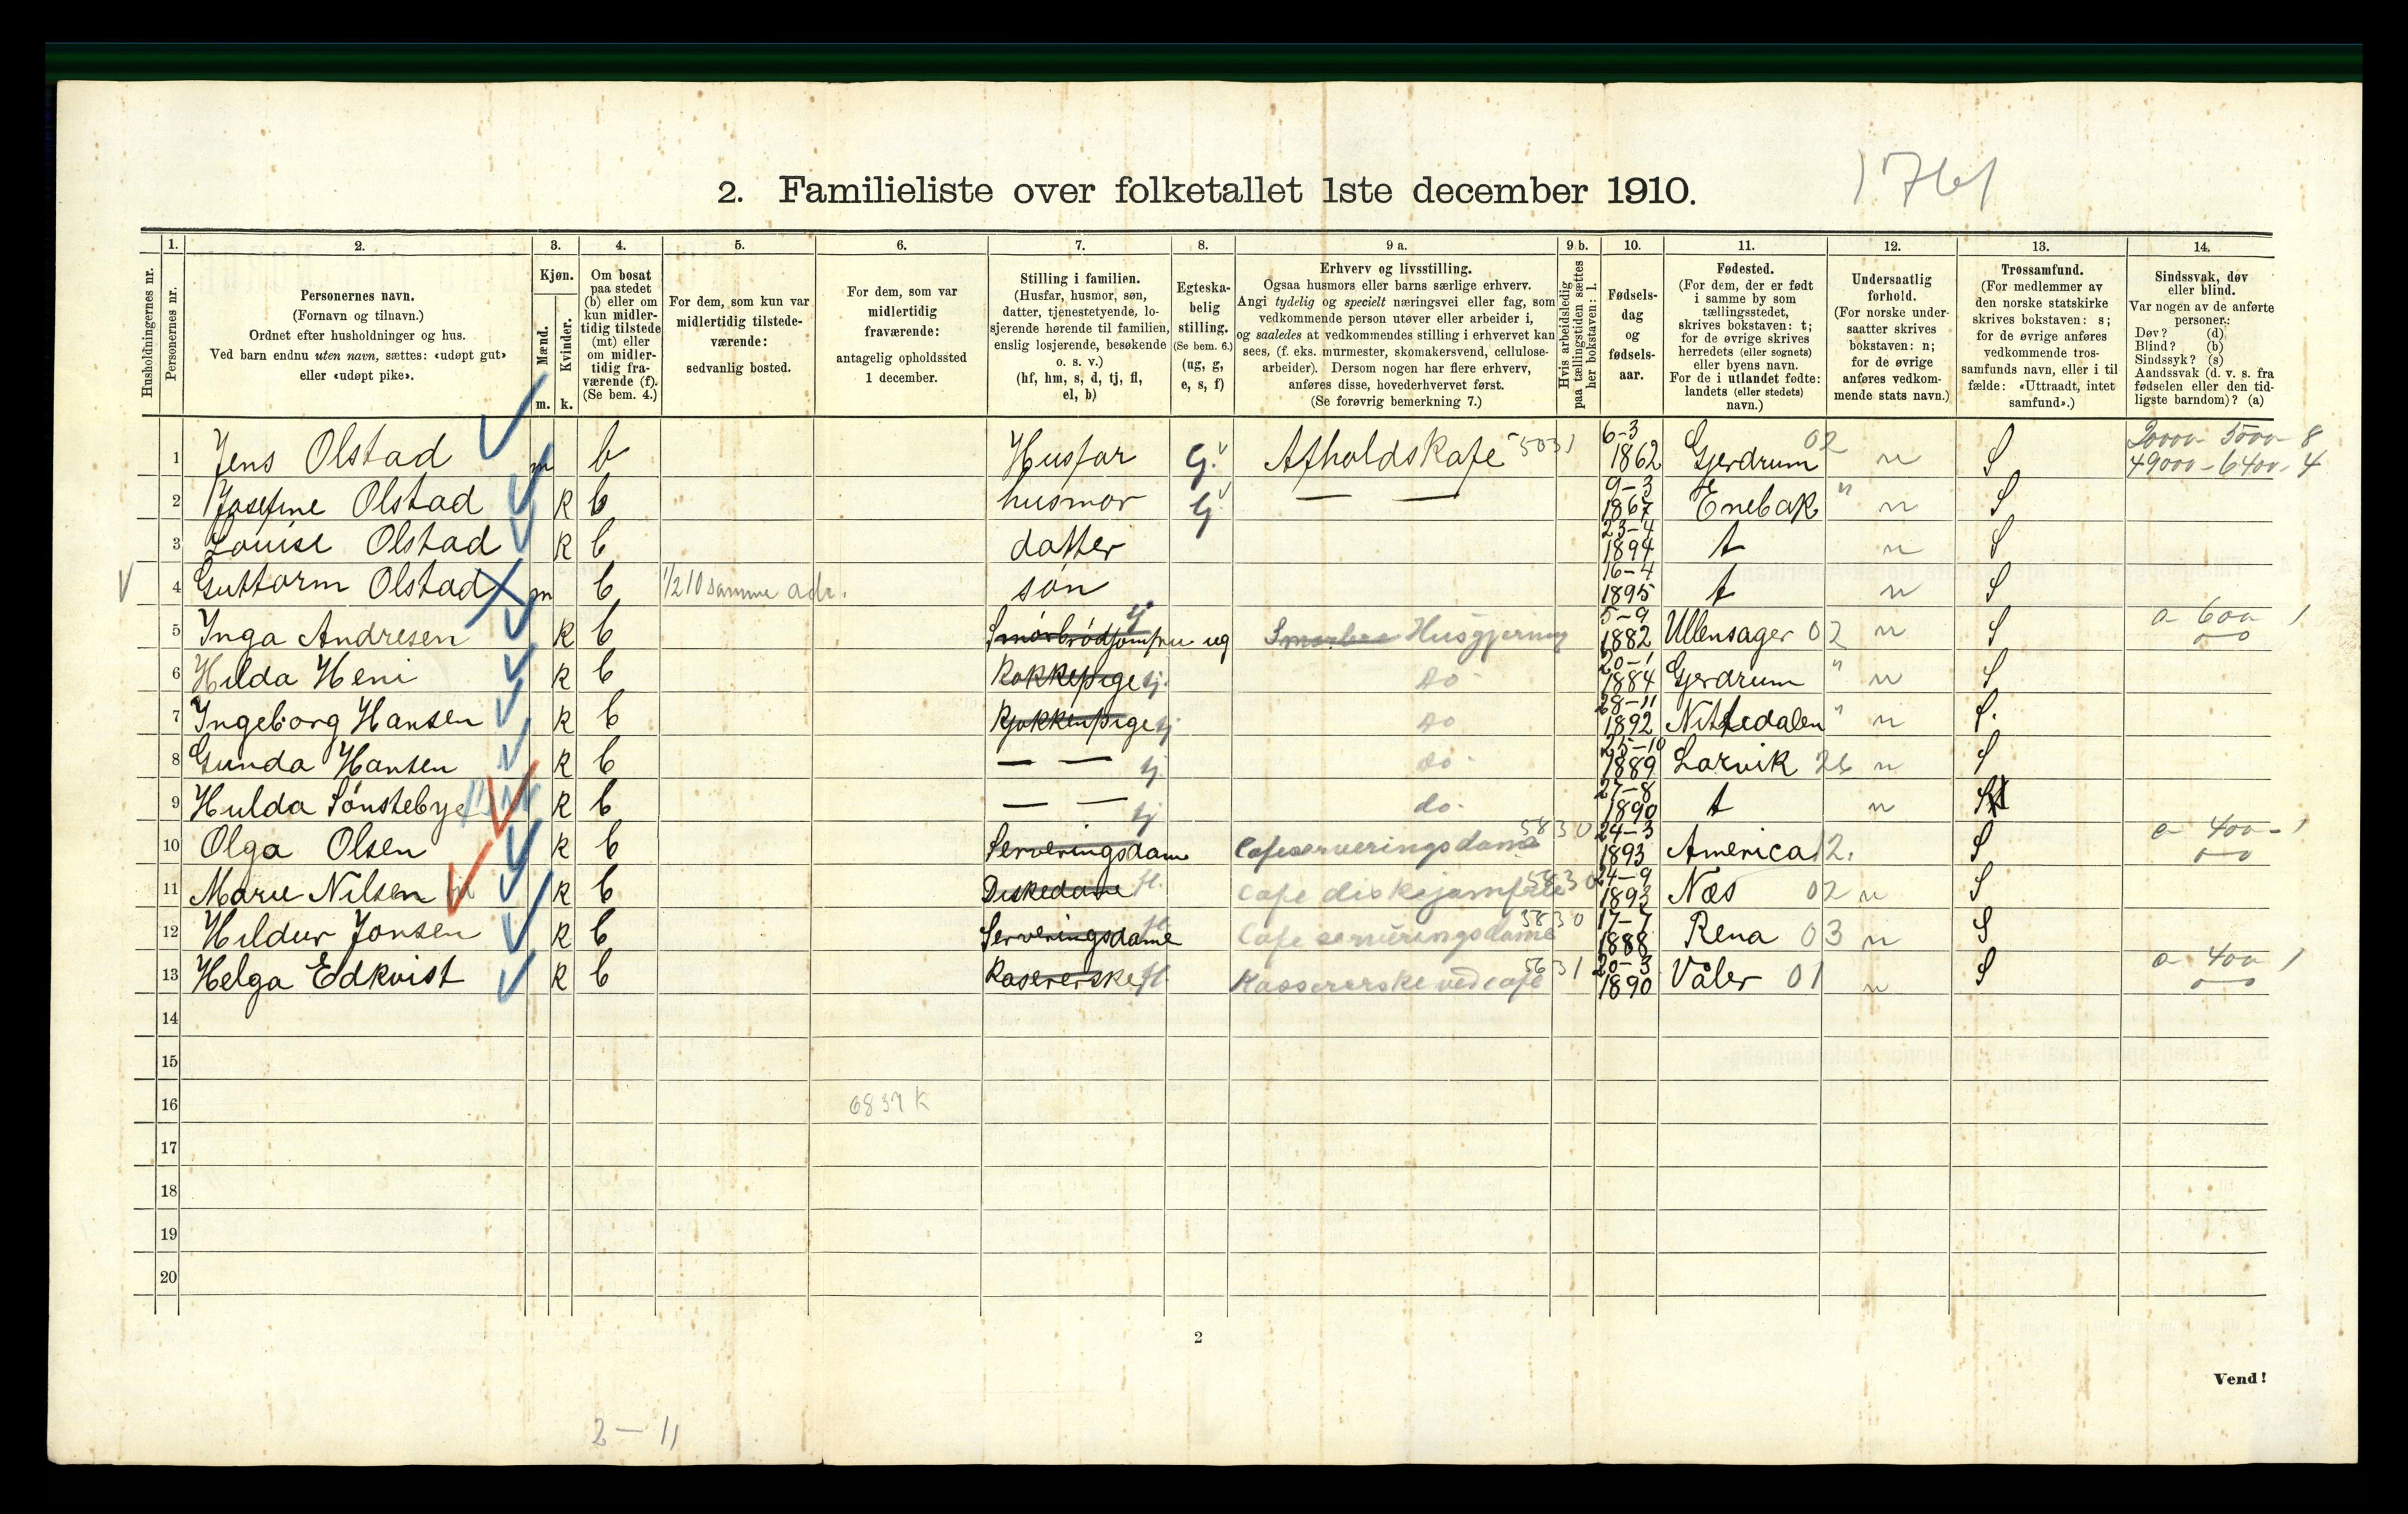 2. Familieliste over folketallet 1ste december 1910.
1761
Husholdningernes nr.
1.
Personernes nr.
2.
Personernes navn.
(Fornavn og tilnavn.)
Ordnet efter husholdninger og hus.
Ved barn endnu uten navn, sættes: «udøpt gut»
eller «udøpt pike».
3.
Kjøn.
Mænd.
Kvinder.
m. k.
4.
Om bosat
paa stedet
(b) eller om
kun midler-
tidig tilstede
(mt) eller
om midler-
tidig fra-
værende (f).
(Se bem. 4.)
5.
For dem, som kun var
midlertidig tilstede-
værende:
sedvanlig bosted.
6.
For dem, som var
midlertidig
fraværende:
antagelig opholdssted
1 december.
7.
Stilling i familien.
(Husfar, husmor, søn,
datter, tjenestetyende, lo-
sjerende hørende til familien,
enslig losjerende, besøkende
o. s. v.)
(hf, hm, s, d, tj, fl,
el, b)
8.
Egteska-
belig
stilling.
(Se bem. 6.)
(ug, g,
e, s, f)
9 a.
Erhverv og livsstilling.
Ogsaa husmors eller barns særlige erhverv.
Angi tydelig og specielt næringsvei eller fag, som
vedkommende person utøver eller arbeider i,
og saaledes at vedkommendes stilling i erhvervet kan
sees, (f. eks. murmester, skomakersvend, cellulose-
arbeider). Dersom nogen har flere erhverv,
anføres disse, hovederhvervet først.
(Se forøvrig bemerkning 7.)
9 b.
Hvis arbeidsledig
paa tællingstiden sættes
her bokstaven: l.
10.
Fødsels-
dag
og
fødsels-
aar.
11.
Fødested.
(For dem, der er født
i samme by som
tællingsstedet,
skrives bokstaven: t;
for de øvrige skrives
herredets (eller sognets)
eller byens navn.
For de i utlandet fødte:
landets (eller stedets)
navn.)
12.
Undersaatlig
forhold.
(For norske under-
saatter skrives
bokstaven: n;
for de øvrige
anføres vedkom-
mende stats navn.)
13.
Trossamfund.
(For medlemmer av
den norske statskirke
skrives bokstaven: s;
for de øvrige anføres
vedkommende tros-
samfunds navn, eller i til
fælde: «Uttraadt, intet
samfund».)
14.
Sindssvak, døv
eller blind.
Var nogen av de anførte
personer:
Døv? (d)
Blind? (b)
Sindssyk? (s)
Aandssvak (d. v. s. fra
fødselen eller den tid-
ligste barndom)? (a)
1 Jens Olstad m b Husfar G. Afholdskafe 5031 6-3 1862 Gjerdrum 02 n S 20000 - 5000 - 8
49000 - 6400 - 4
2 Josefine Olstad k b husmor G — — 9-3 1867 Enebak " n S
3 Louise Olstad k b datter 23-4 1894 t n S
4 Guttorm Olstad m b 1/2 10 samme adr. søn 16-4 1895 t n S
5 Inga Andresen k b Smörbrödjomfru tj ug Husgjerning 5-9 1882 Ullensager 02 n S a 600 1
6 Hilda Heni k b Kokkepige tj. do 20-1 1884 Gjerdrum " n S
7 Ingeborg Hansen k b Kjøkkenpige tj do 28-11 1892 Nittedalen " n S.
8 Gunda Hansen k b — — tj do 25-10 1889 Larvik 26 n S
9 Hulda Sönstebye k b — — tj do. 27-8 1890 t n
10 Olga Olsen k b Serveringsdame Cafeserveringsdame 5830 24-3 1893 America 12. S a 400 - 1
11 Marie Nilsen k b Diskedame fl. Cafe diskejomfru 5830 24-9 1893 Næs 02 n S
12 Hildur Jonsen k b Serveringsdame fl Cafe serveringsdame 5830 17-7 1888 Rena 03 n S
13 Helga Edkvist k b Kasererske fl. Kassererske ved cafe 5631 20-3 1890 Våler 01 n S a 400 1
14
15
16 6837 K
17
18
19
20
2
Vend!
2 - 11